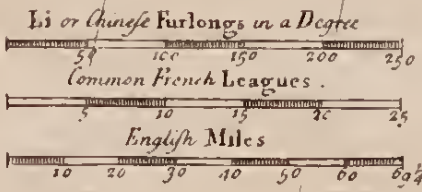 Li or Chineſe Furlongs in a Degree
50 100 150 200 250
Common French Leagues.
5 10 15 20 25
Engliſh Miles
10 20 30 40 50 60 69¼